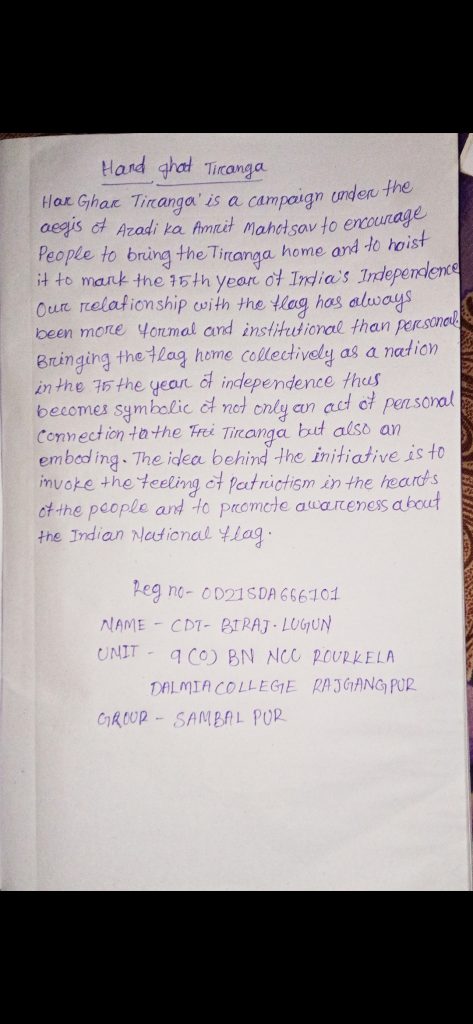 Hard ghat Tiranga
Har Ghar Tiranga' is a campaign under the
aegis of Azadi ka Amrit Mahotsav to encourage
People to bring the Tiranga home and to hoist
it to mark the 75th year of India's Independence
Our relationship with the flag has always
been more formal and institutional than personal.
Bringing the flag home collectively as a nation
in the 75 the year of independence thus
becomes symbolic of not only an act of personal
Connection to the Tri Tiranga but also an
emboding. The idea behind the initiative is to
invoke the feeling of Patriotism in the hearts
of the people and to promote awareness about
the Indian National flag.
Reg no- OD21SDA666101
NAME - CDT- BIRAJ. LUGUN
UNIT - 9 (O) BN NCC ROURKELA
DALMIA COLLEGE RAJGANGPUR
GROUP - SAMBAL PUR